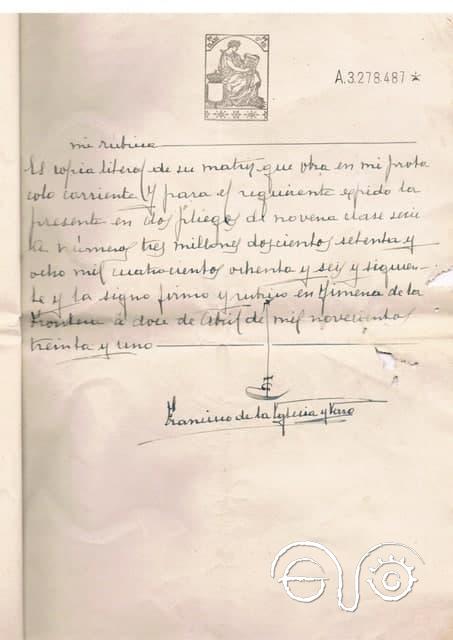 A.3.278.487 *
mi rubrica
Es copia literal de su matriz que obra en mi proto
colo corriente y para el requirente expido la
presente en dos pliegos de novena clase serie
A números tres millones doscientos setenta y
ocho mil cuatrocientos ochenta y seis y siguien-
te y la signo firmo y rubrico en Jimena de la
Frontera a doce de Abril de mil novecientos
treinta y uno
Francisco de la Iglesia y Varo